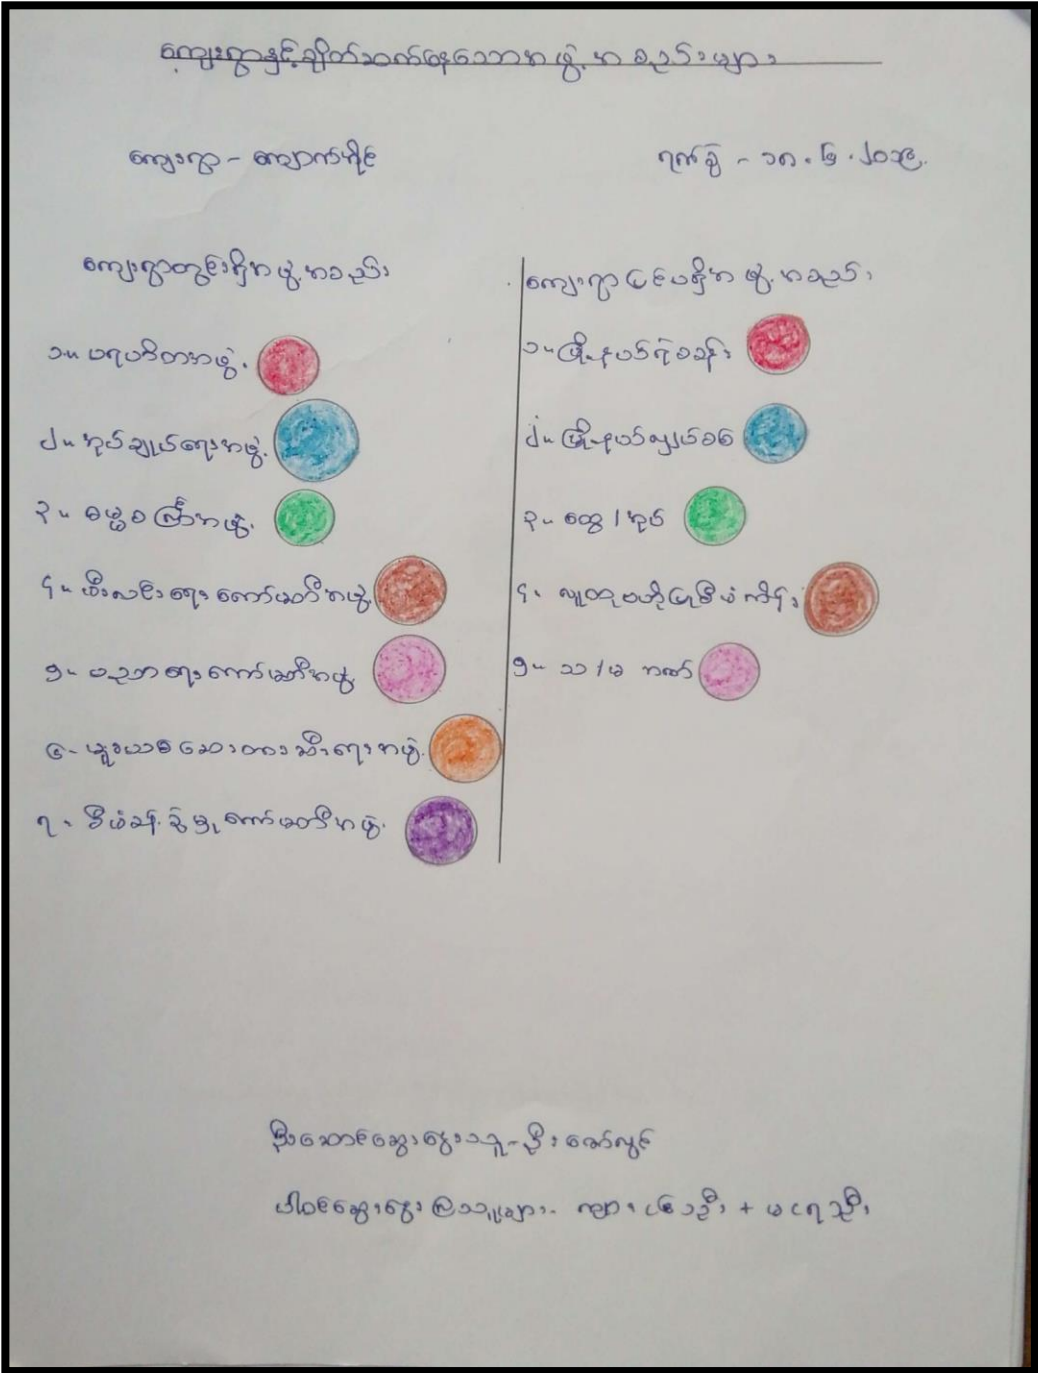 ကျေးရွာနှင့်ချိတ်ဆက်နေသောအဖွဲ့အစည်းများ
ကျေးရွာ - ကျောက်တိုင်
ရက်စွဲ - ၁၈.၆.၂၀၁၉.
ကျေးရွာတွင်းရှိအဖွဲ့အစည်း
၁။ ပရဟိတအဖွဲ့.
၂။ အုပ်ချုပ်ရေးအဖွဲ့.
၃။ ဓမ္မစင်္ကြာအဖွဲ့.
၄။ မီးလင်းရေးကော်မတီအဖွဲ့
၅။ ပညာရေးကော်မတီအဖွဲ့
၆- မူးယစ်ဆေးတားဆီးရေးအဖွဲ့.
၇။ စီမံခန့်ခွဲမှုကော်မတီအဖွဲ့.
ကျေးရွာပြင်ပရှိအဖွဲ့အစည်း
၁။ မြို့နယ်ရဲစခန်း
၂။ မြို့နယ်လျှပ်စစ်
၃။ ထွေ/အုပ်
၄။ လူထုဗဟိုပြုစီမံကိန်း
၅။ သ/မ ဘဏ်
ဦးဆောင်ဆွေးနွေးသူ - ဦးဇော်လွင်
ပါဝင်ဆွေးနွေးကြသူများ-